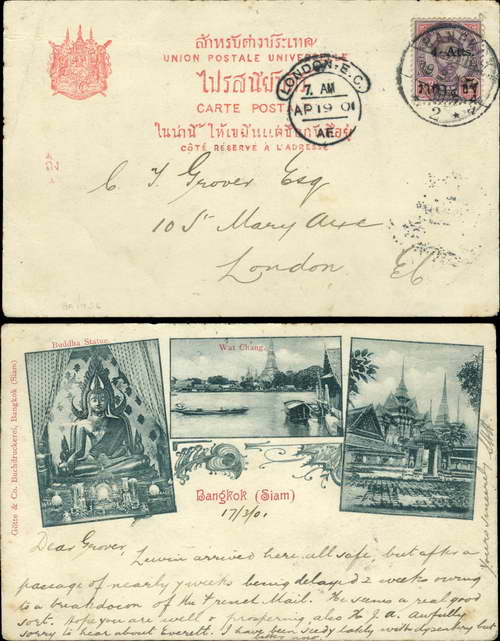 สำหรับต่างประเทศ
UNION POSTALE UNIVERSELLE
ไปรสนียบัตร
CARTE POSTALE
ในน่านี้ ให้เขียนแต่ชื่อกับที่อยู่
CÔTÉ RÉSERVÉ A L'ADRESSE
ถึง
LONDON.E.C.
7. AM
AP 19 01
AE
BANGKOK
4 Atts.
2
C. J. Grover Esq
10 St Mary Axe
London EC
Buddha Statue.
Wat Chang.
Götte & Co. Buchdruckerei, Bangkok (Siam)
Bangkok (Siam)
17/3/01
Dear Grover,
Lewin arrived here all safe, but after a
passage of nearly 7 weeks being delayed 2 weeks owing
to a breakdown of the French Mail. He seems a real good
sort. Hope you are well & prospering, also the J.A. Awfully
sorry to hear about Everett. I have been seedy lately with dysentery but
Yours sincerely